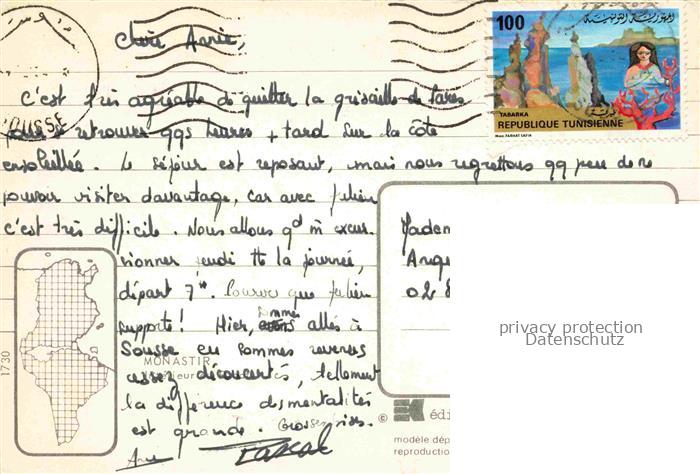 Chère Annie,
C'est très agréable de quitter la grisaille de Paris
pour se retrouver qqs heures + tard sur la côte
ensoleillée. Le séjour est reposant, mais nous regrettons qq peu de ne
pouvoir visiter davantage, car avec Julien
c'est très difficile. Nous allons qd m̂ excur-
sionner jeudi tte la journée,
départ 7h. Pourvu que Julien
supporte! Hier, sommes allés à
Sousse en sommes revenus
assez découverts, tellement
la différence des mentalités
est grande. Grosses bises.
Anne Pascal
100
الجمهورية التونسية
TABARKA
طبرقة
REPUBLIQUE TUNISIENNE
SOUSSE
Madem
Ange
02 8
1730
MONASTIR
©
EK édi
modèle dép
reproduction
privacy protection
Datenschutz